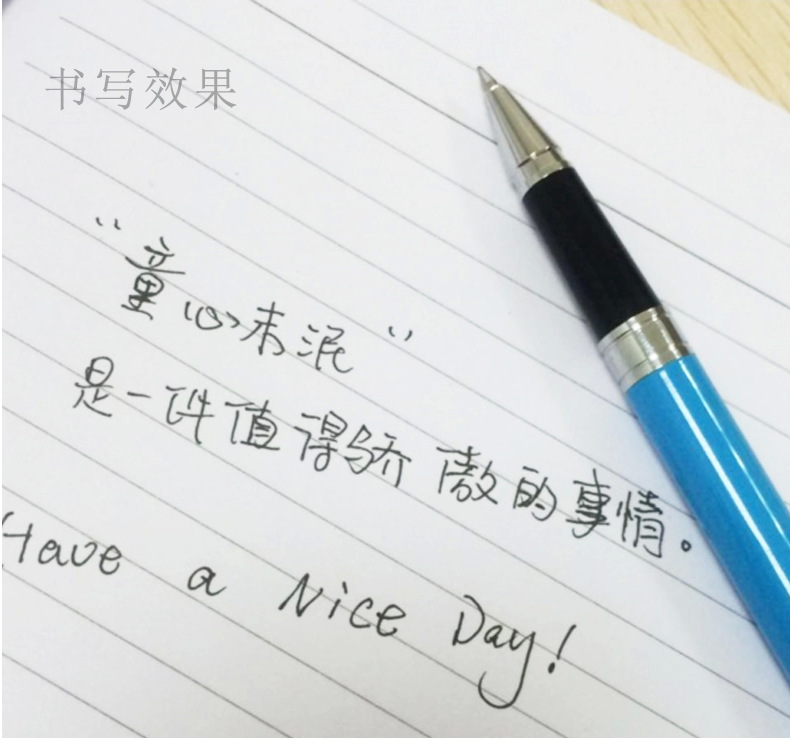 书写效果
“童心未泯”
是一件值得骄傲的事情。
Have a Nice Day!